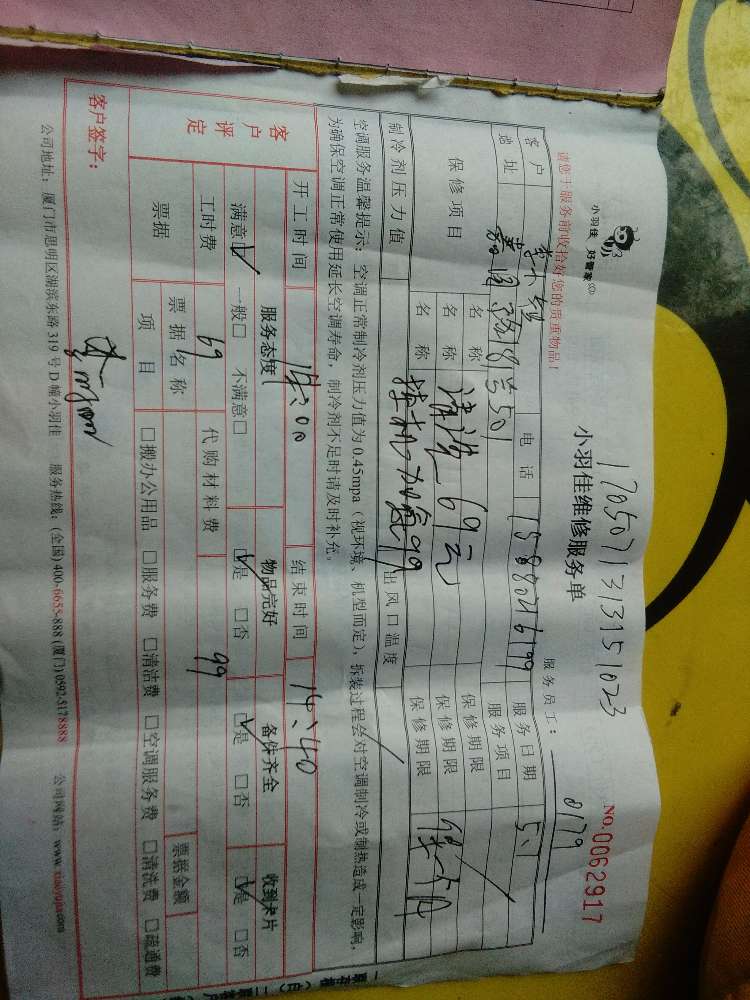 小羽佳 好管家
170507131315 1023
小羽佳维修服务单
NO.0062917
请您于服务前收拾好您的贵重物品！
服务员工： 0179
客户 电话 服务日期 5.1
地址 501 服务项目
保修项目 名称 清洗69元 保修期限
名称 挂机加氨99 保修期限
制冷剂压力值 出风口温度 保修期限
空调服务温馨提示：空调正常制冷剂压力值为0.45mpa（视环境、机型而定），拆装过程会对空调制冷或制热造成一定影响，
为确保空调正常使用延长空调寿命，制冷剂不足时请及时补充。
开工时间 14:00 结束时间 14:40
客户评定 服务态度 物品完好 备件齐全 收到卡片
满意☑ 一般□ 不满意□ ☑是 □否 ☑是 □否 ☑是 □否
工时费 69 代购材料费 99
票据 票据名称 票据金额
项目 □搬办公用品 □服务费 □清洁费 □空调服务费 □清洗费 □疏通费
客户签字：
公司地址：厦门市思明区湖滨东路319号D幢小羽佳 服务热线：(全国)400-6655-888 (厦门)0592-5178888 公司网站：www.xiaoyujia.com